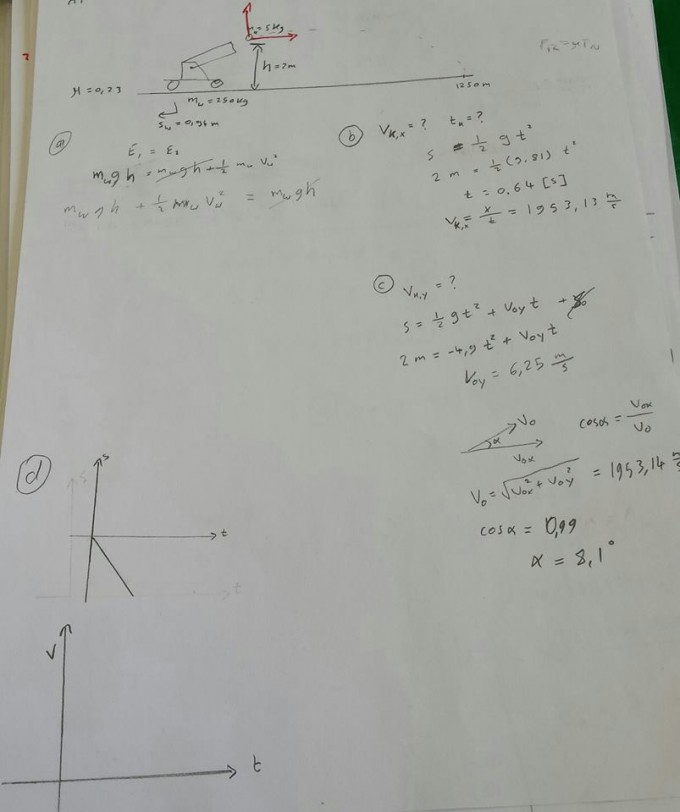 m = 5 kg
h = 2m
F_R = μF_N
μ = 0,23
m_w = 250 kg
1250 m
s_w = 0,96 m
(a)
E₁ = E₂
m_w g h = m_w g h + ½ m_w v_w²
m_w g h + ½ m_w v_w² = m_w g h
(b) V_K,x = ? t_K = ?
s = ½ g t²
2 m = ½ (9,81) t²
t = 0,64 [s]
V_K,x = x/t = 1953,13 m/s
(c) V_K,y = ?
s = ½ g t² + V_0y t +
2 m = -4,9 t² + V_0y t
V_0y = 6,25 m/s
V_0
α
V_0x
cosα = V_0x/V_0
V_0 = √(V_0x² + V_0y²) = 1953,14 m/s
cosα = 0,99
α = 8,1°
(d)
s
t
t
V
t